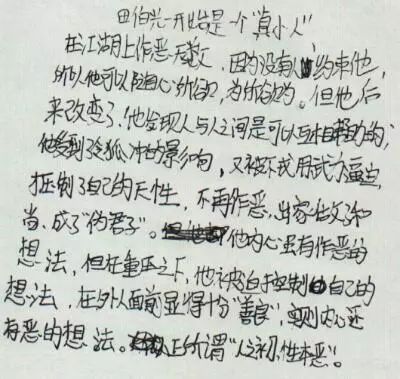 田伯光一开始是一个“真小人”,
在江湖上作恶无数,因为没有人约束他,
所以他可以随心所欲,为所欲为。但他后
来改变了,他发现人与人之间是可以互相帮助的;
他受到令狐冲的影响,又被不戒用武力逼迫,
压制了自己的天性,不再作恶,出家做了和
尚,成了“伪君子”。他内心虽有作恶的
想法,但在重压之下,他被迫控制自己的
想法,在外人面前显得十分“善良”,实则内心还
存恶的想法。正所谓“人之初,性本恶”。